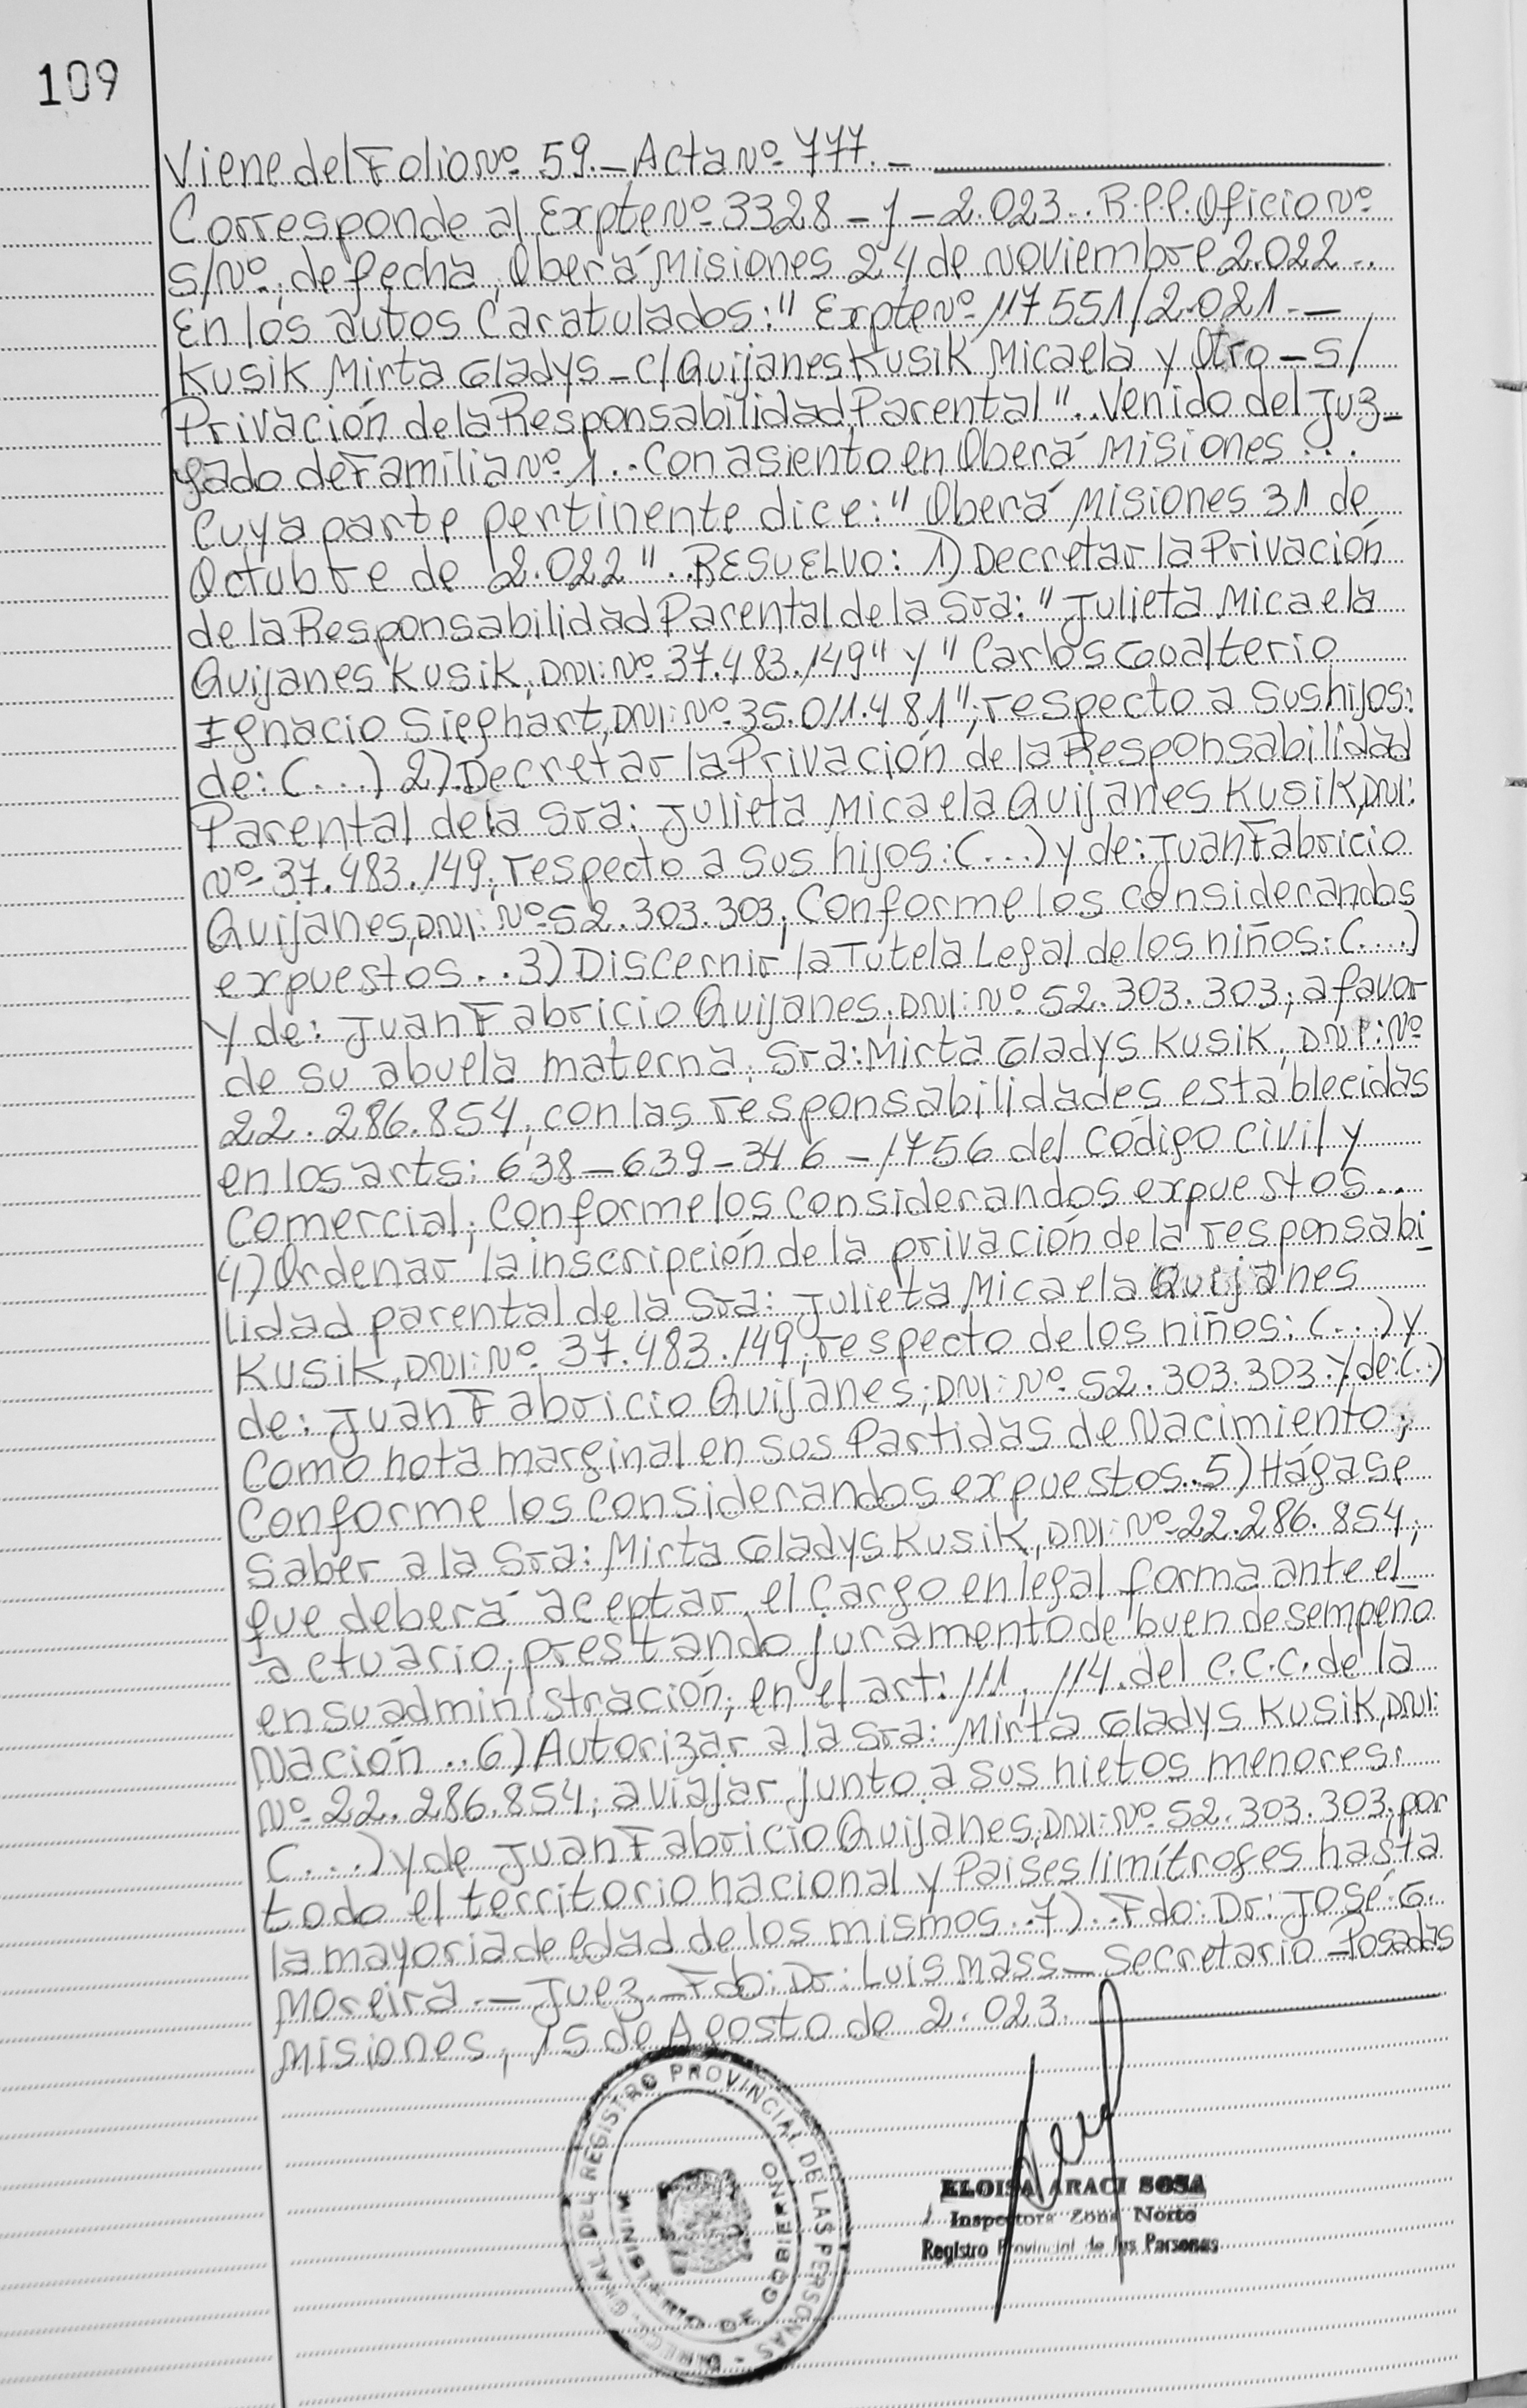 109
Viene del Folio Nº 59.- Acta Nº 777.-
Corresponde al Expte Nº 3328-y-2.023.. R.P.P. Oficio Nº
S/Nº; de fecha, Oberá Misiones 24 de Noviembre 2.022..
En los autos Caratulados: " Expte Nº 117551/2.021.-
Kusik Mirta Gladys - C/ Quijanes Kusik Micaela y Otro - S/
Privación de la Responsabilidad Parental".. Venido del Juz-
gado de Familia Nº 1.. Con asiento en Oberá Misiones...
Cuya parte pertinente dice: " Oberá Misiones 31 de
Octubre de 2.022". RESUELVO: 1) Decretar la Privación
de la Responsabilidad Parental de la Sra: "Julieta Micaela
Quijanes Kusik, DNI: Nº 37.483.149" y " Carlos Gualterio
Ignacio Sieghart, DNI: Nº 35.011.481"; respecto a sus hijos:
de: (...) 2) Decretar la Privación de la Responsabilidad
Parental de la Sra: Julieta Micaela Quijanes Kusik, DNI:
Nº 37.483.149; respecto a sus hijos: (...) y de: Juan Fabricio
Quijanes, DNI: Nº 52.303.303; Conforme los considerandos
expuestos.. 3) Discernir la Tutela Legal de los niños: (....)
Y de: Juan Fabricio Quijanes; DNI: Nº 52.303.303; a favor
de su abuela materna; Sra: Mirta Gladys Kusik, DNI: Nº
22.286.854; con las responsabilidades establecidas
en los arts: 638-639-346-1756 del Código Civil y
Comercial; Conforme los considerandos expuestos...
4) Ordenar la inscripción de la privación de la responsabi-
lidad parental de la Sra: Julieta Micaela Quijanes
Kusik, DNI: Nº 37.483.149; respecto de los niños: (...) y
de: Juan Fabricio Quijanes; DNI: Nº 52.303.303. Y de: (..)
Como nota marginal en sus Partidas de Nacimiento;
Conforme los considerandos expuestos.. 5) Hágase
Saber a la Sra: Mirta Gladys Kusik, DNI: Nº 22.286.854;
que deberá aceptar el Cargo en legal forma ante el
actuario; prestando juramento de buen desempeño
en su administración; en el art: 111, 114. del C.C.C. de la
Nación.. 6) Autorizar a la Sra: Mirta Gladys Kusik, DNI:
Nº 22.286.854; a viajar junto a sus nietos menores:
(...) y de Juan Fabricio Quijanes, DNI: Nº 52.303.303; por
todo el territorio nacional y Paises limítrofes hasta
la mayoria de edad de los mismos.. 7).. Fdo: Dr: José G.
Moreira.- Juez - Fdo: Dr: Luis Mass - Secretario - Posadas
Misiones, 15 de Agosto de 2.023.
DEL REGISTRO PROVINCIAL DE LAS PERSONAS
GOBIERNO
ELOISA ARACI SOSA
Inspectora Zona Norte
Registro Provincial de las Personas